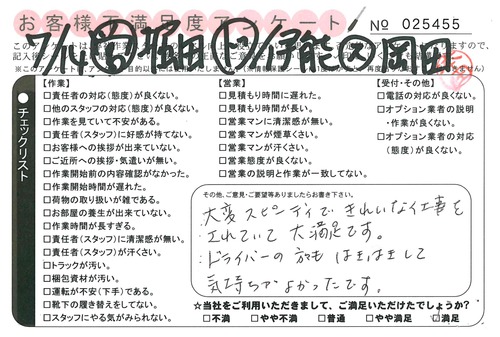 お客様不満足度アンケート
No 025455
7/14
堀田
岡田
●チェックリスト
【作業】
□責任者の対応(態度)が良くない。
□他のスタッフの対応(態度)が良くない。
□作業を見ていて不安がある。
□責任者(スタッフ)に好感が持てない。
□お客様への挨拶が出来ていない。
□ご近所への挨拶・気遣いが無い。
□作業開始前の内容確認がなかった。
□作業開始時間が遅れた。
□荷物の取り扱いが雑である。
□お部屋の養生が出来ていない。
□作業時間が長すぎる。
□責任者(スタッフ)に清潔感が無い。
□責任者(スタッフ)が汗くさい。
□トラックが汚い。
□梱包資材が汚い。
□運転が不安(下手)である。
□靴下の履き替えをしてない。
□スタッフにやる気がみられない。
【営業】
□見積もり時間に遅れた。
□見積もり時間が長い。
□営業マンに清潔感が無い。
□営業マンが煙草くさい。
□営業マンが汗くさい。
□営業態度が良くない。
□営業の説明と作業が一致してない。
【受付・その他】
□電話の対応が良くない。
□オプション業者の説明
・作業が良くない。
□オプション業者の対応
(態度)が良くない。
その他、ご意見・ご要望等ありましたらお書き下さい。
大変スピーディで きれいな仕事を
されていて 大満足です。
ドライバーの方も はきはきして
気持ちがよかったです。
☆当社をご利用いただきまして、ご満足いただけたでしょうか?
□不満 □やや不満 □普通 □やや満足 □満足